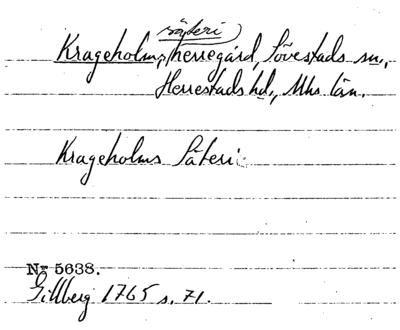 säteri
Krageholm, herregård, Sövestads sn.,
Herrestads hd., Mhs län.
Krageholms Säteri
No 5638.
Gillberg 1765 s. 71.